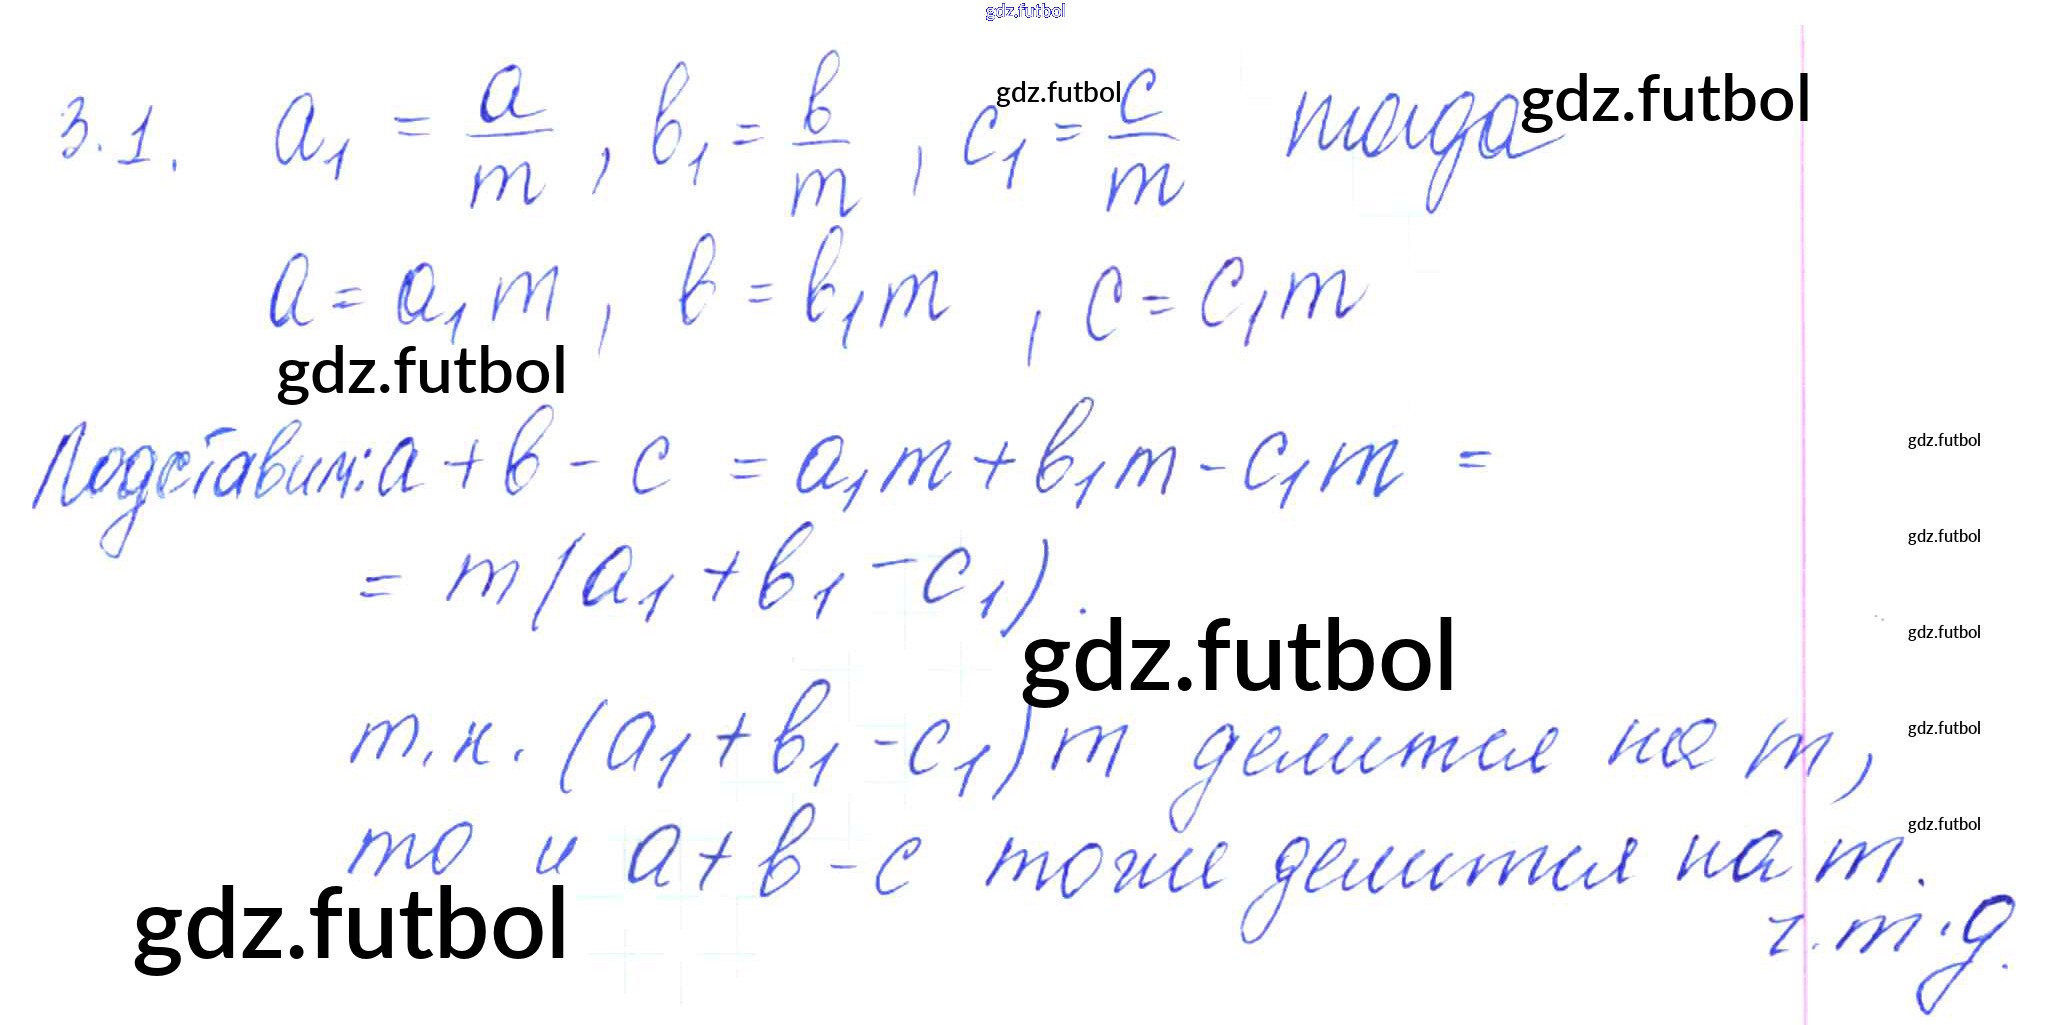 gdz.futbol
3.1. a₁ = a/m, в₁ = в/m, gdz.futbol c₁ = c/m тогда gdz.futbol
a = a₁m, в = в₁m, c = c₁m
gdz.futbol
Подставим: a + в - c = a₁m + в₁m - c₁m =
gdz.futbol
= m(a₁ + в₁ - c₁).
gdz.futbol
gdz.futbol
gdz.futbol
т.к. (a₁ + в₁ - c₁)m делится на m,
gdz.futbol
то и a + в - c тоже делится на m.
gdz.futbol
gdz.futbol
ч.т.д.